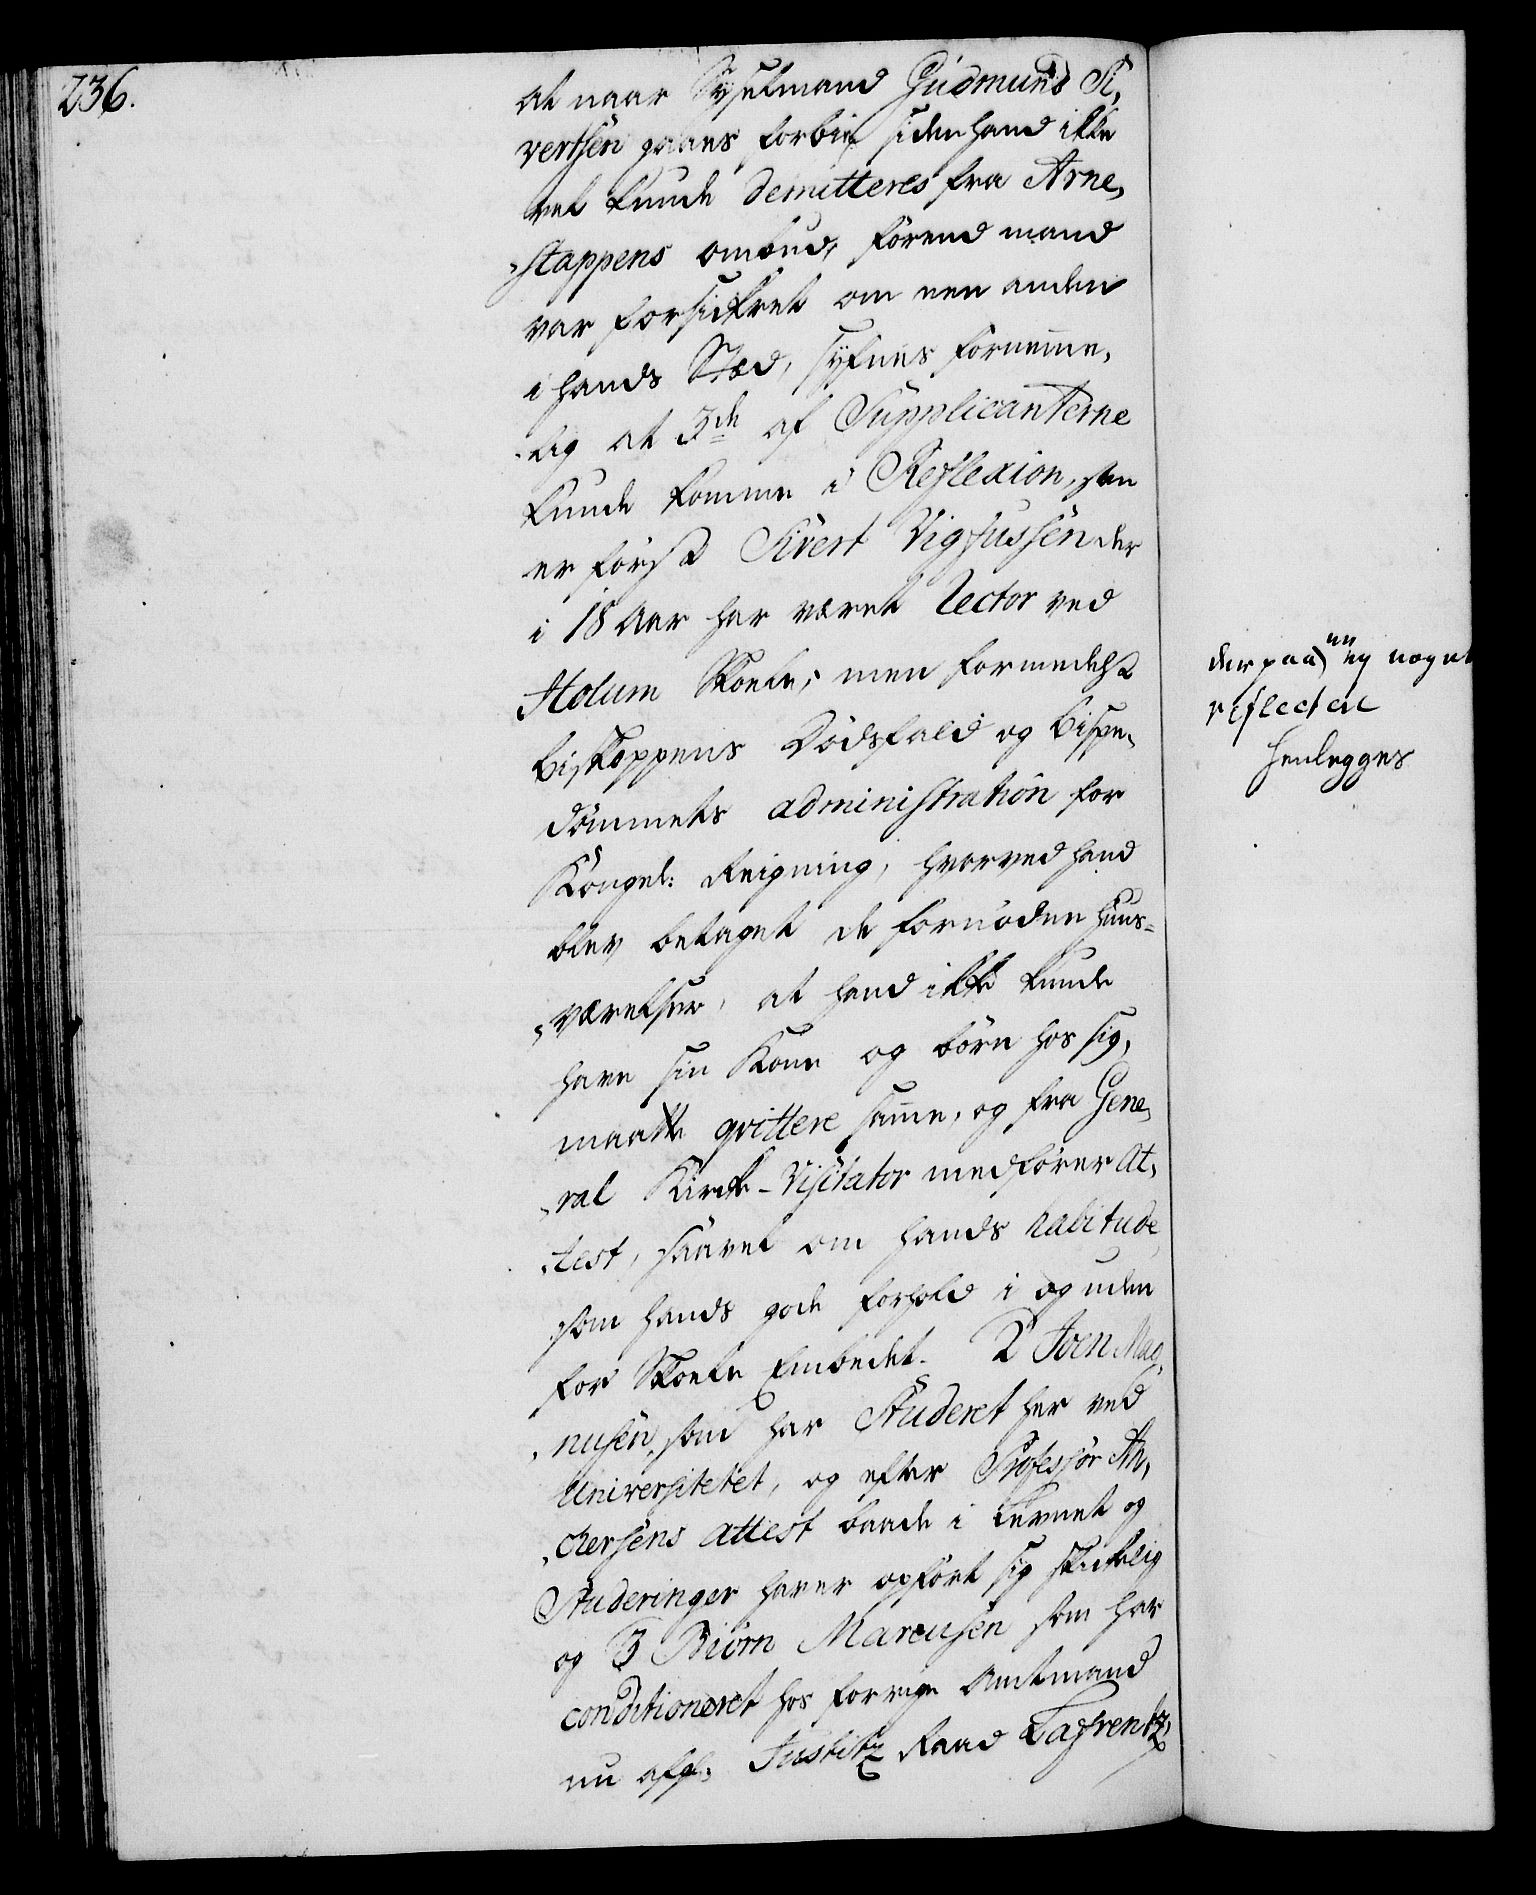 236.
at naar Sysselmand Gudmund Si,
vertsen gaaes forbie, siden hand ikke
vel kunde demitteres fra Arne,
,stappens ombud, förend mand
var forsickret om een anden
i hands Stæd, synes fornemme,
,lig at 3de af Supplicanterne
kunde komme i Reflexion, som
er först Sivert Vigfussen der
i 18 Aar har været Rector ved
Holum Skoele, men formedelst
biskoppens Dödsfald og bispe,
dömmets administration for
Kongel: Reigning, hvorved hand
blev betaget de fornödne huus-
,værelser, at hand ikke kunde
have sin Kone og börn hos sig,
maatte qvittere samme, og fra Gene,
,ral Kirke-Visitator medförer At,
,test, saavel om hands habitude
som hands gode forhold i og uden
for Skoele Embedet. 2 Joen Mag,
,nusen, som har Studeret her ved
Universitetet, og efter Professor An,
,chersens attest baade i Levnet og
Studeringer haver opfört sig skickelig
og 3 Biörn Marcusen som har
conditioneret hos forrige Amtmand
nu afg. Justitz Raad Lafrentz,
derpaa nu ey noget
reflectere
henlegges